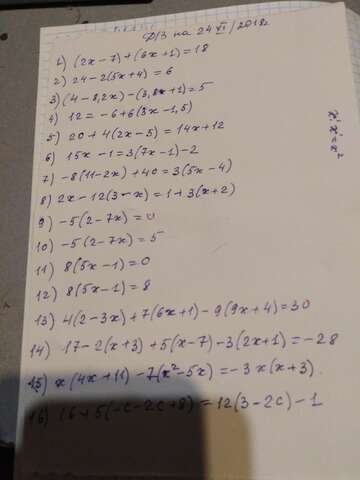 Д/З на 24 VI / 2018г
1) (2x-7)+(6x+1)=18
2) 24-2(5x+4)=6
3) (4-8,2x)-(3,8x+1)=5
4) 12=-6+6(3x-1,5)
5) 20+4(2x-5)=14x+12
6) 15x-1=3(7x-1)-2
7) -8(11-2x)+40=3(5x-4)
8) 2x-12(3-x)=1+3(x+2)
9) -5(2-7x)=0
10) -5(2-7x)=5
11) 8(5x-1)=0
12) 8(5x-1)=8
13) 4(2-3x)+7(6x+1)-9(9x+4)=30
14) 17-2(x+3)+5(x-7)-3(2x+1)=-28
15) x(4x+11)-7(x²-5x)=-3x(x+3)
16) 16+5(-c-2c+8)=12(3-2c)-1
x¹·x¹=x²